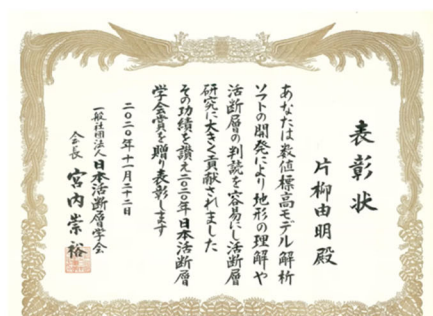 表彰状
片柳由明殿
あなたは数値標高モデル解析
ソフトの開発により地形の理解や
活断層の判読を容易にし活断層
研究に大きく貢献されました
その功績を讃え二〇二〇年日本活断層
学会賞を贈り表彰します
二〇二〇年十一月二十二日
一般社団法人日本活断層学会
会長 宮内崇裕